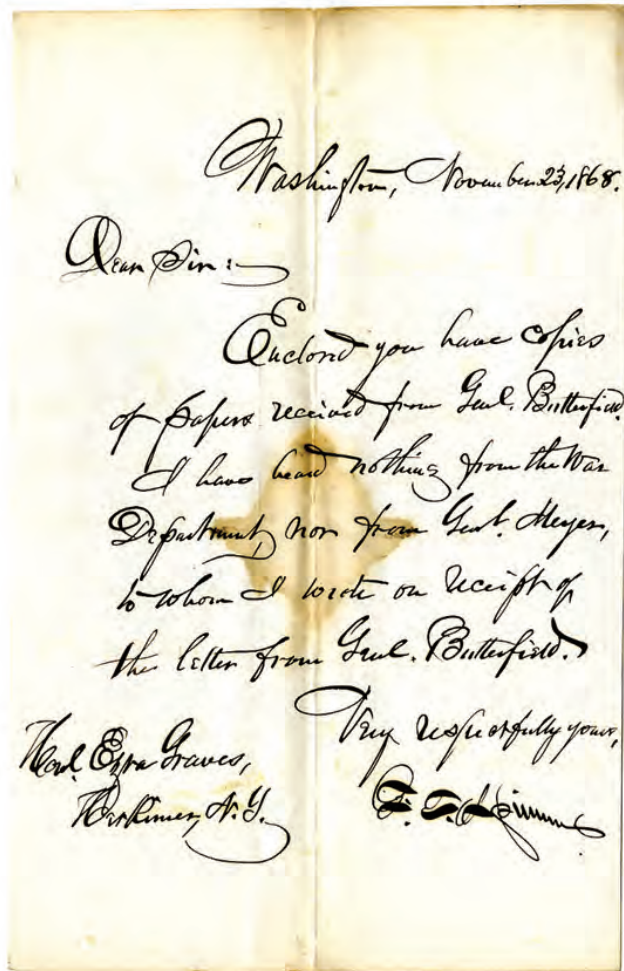 Washington, November 23, 1868.
Dear Sir:
Enclosed you have copies
of papers received from Genl. Butterfield.
I have heard nothing from the War
Department, nor from Genl. Meyer,
to whom I wrote on receipt of
the letter from Genl. Butterfield.
Very respectfully yours,
Honl. Ezra Graves,
Herkimer, N.Y.